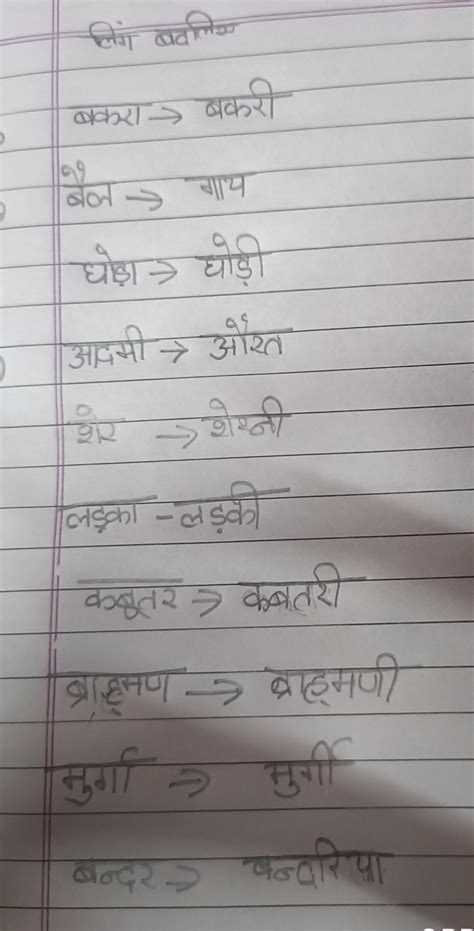 लिंग बदलिए
बकरा → बकरी
बैल → गाय
घोड़ा → घोड़ी
आदमी → औरत
शेर → शेरनी
लड़का - लड़की
कबूतर → कबतरी
ब्राह्मण → ब्राह्मणी
मुर्गा → मुर्गी
बन्दर → बन्दरिया